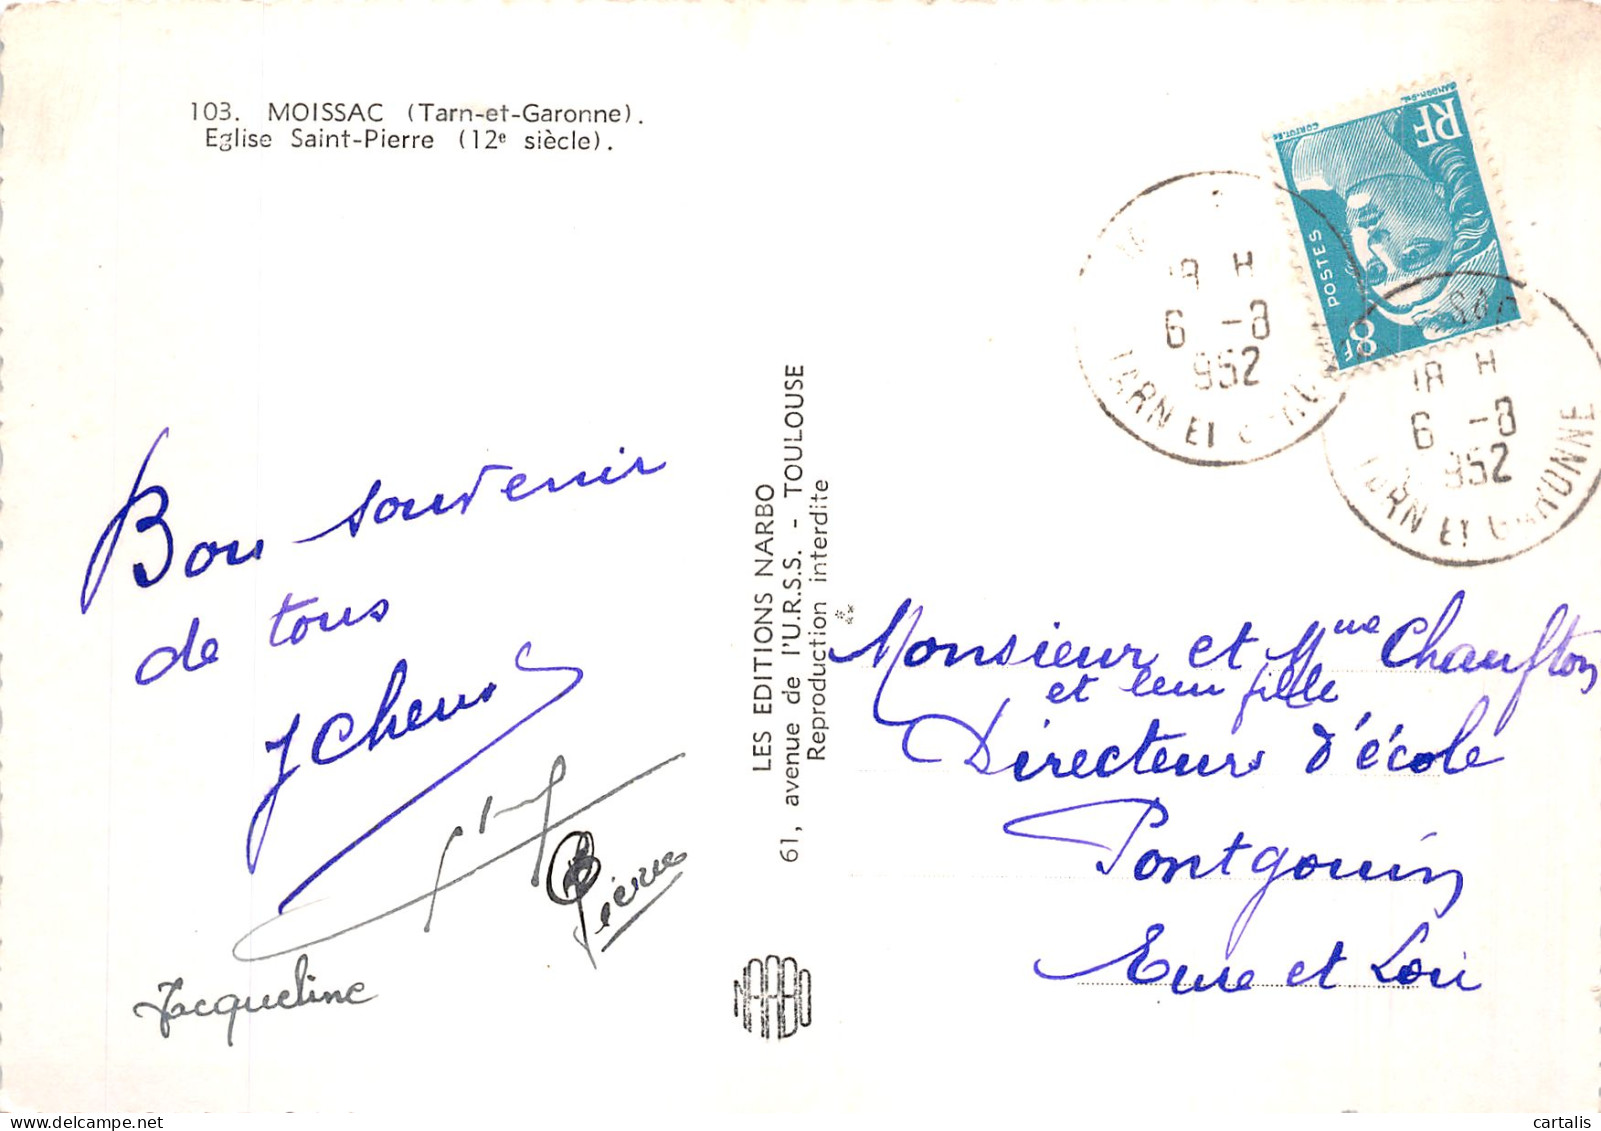 103. MOISSAC (Tarn-et-Garonne).
Eglise Saint-Pierre (12e siècle).
Bon souvenir
de tous
Pierre
Jacqueline
LES EDITIONS NARBO
61, avenue de l'U.R.S.S. - TOULOUSE
Reproduction interdite
RF
POSTES
8F
18 H
6 -8
1952
TARN ET GARONNE
18 H
6 -8
1952
TARN ET GARONNE
Monsieur et Mme Chaufton
et leur fille
Directeurs d'école
Pontgouin
Eure et Loir
NARBO
cartalis